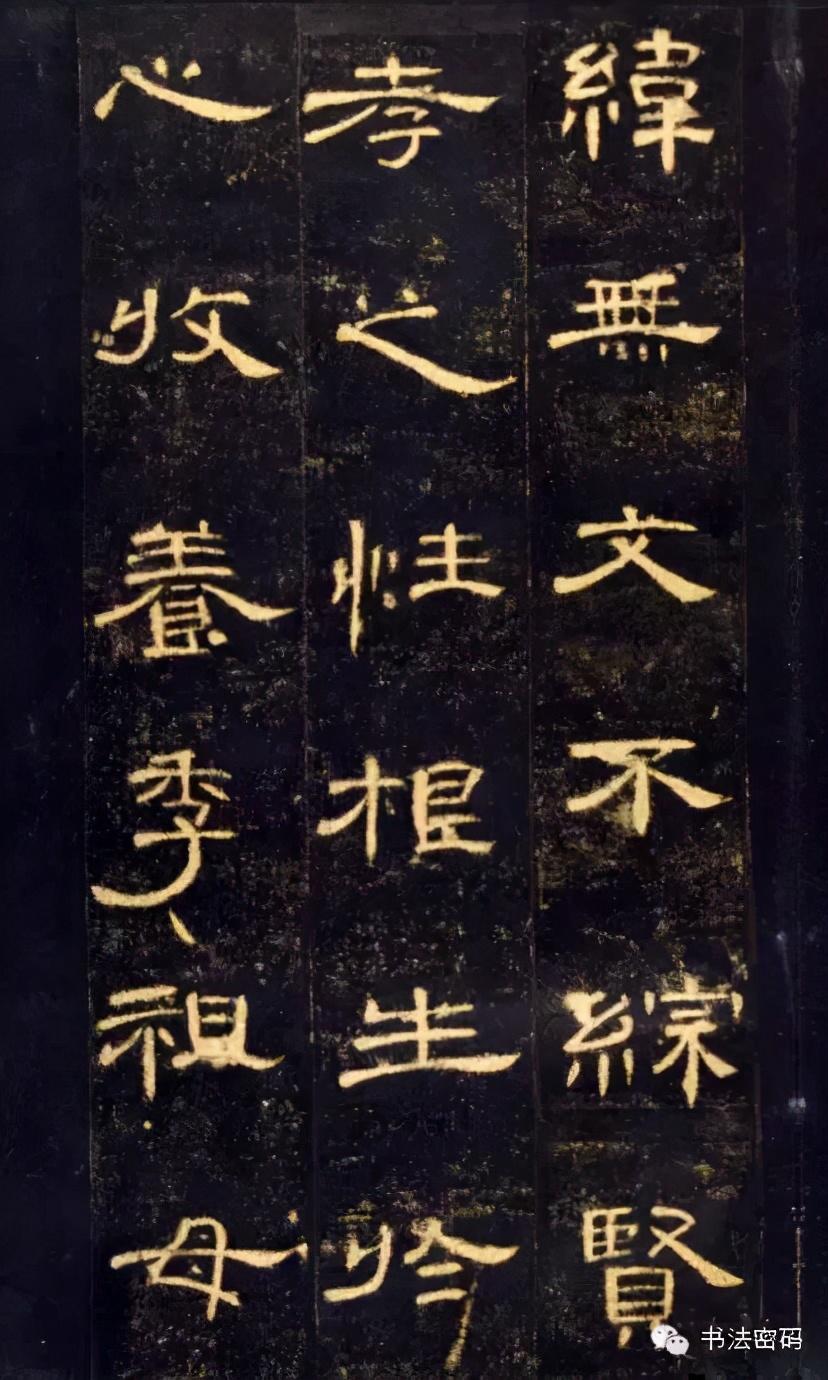 緯無文不綜賢
孝之性根生於
心收養季祖母
书法密码